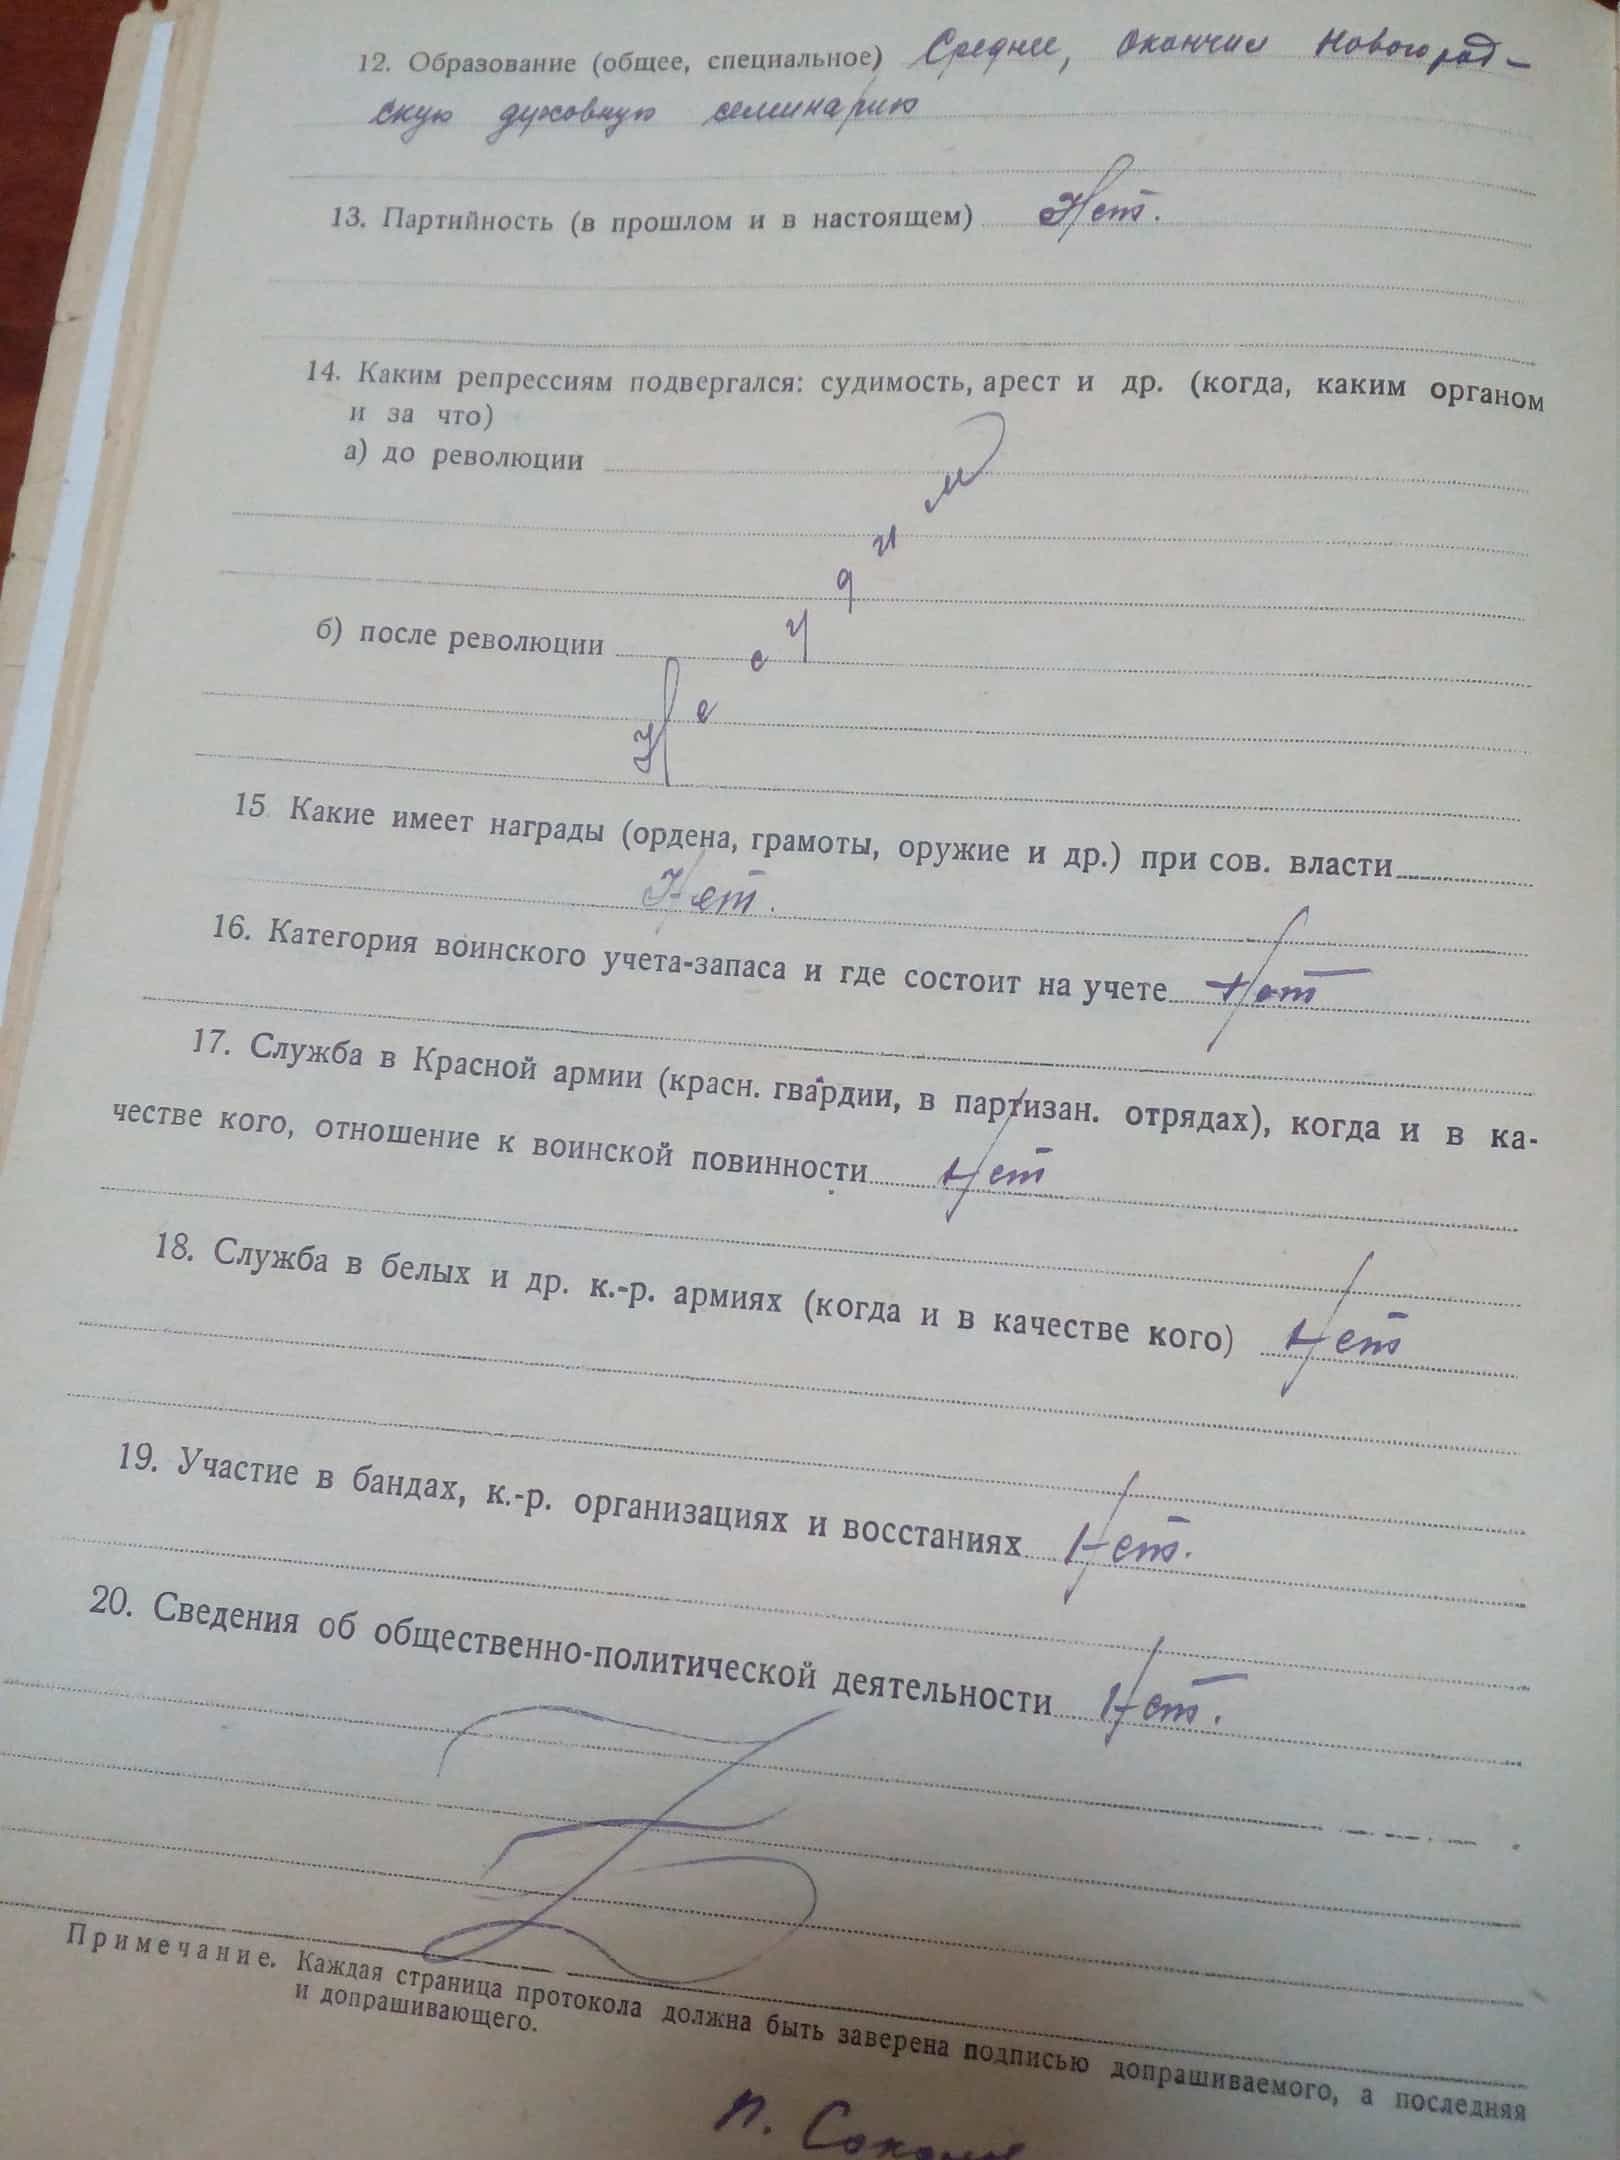 12. Образование (общее, специальное) Среднее, окончил Новгород-
скую духовную семинарию
13. Партийность (в прошлом и в настоящем) Нет.
14. Каким репрессиям подвергался: судимость, арест и др. (когда, каким органом
и за что)
а) до революции
б) после революции
Не судим
15. Какие имеет награды (ордена, грамоты, оружие и др.) при сов. власти
Нет.
16. Категория воинского учета-запаса и где состоит на учете Нет
17. Служба в Красной армии (красн. гвардии, в партизан. отрядах), когда и в ка-
честве кого, отношение к воинской повинности Нет
18. Служба в белых и др. к.-р. армиях (когда и в качестве кого) Нет
19. Участие в бандах, к.-р. организациях и восстаниях Нет.
20. Сведения об общественно-политической деятельности Нет.
Примечание. Каждая страница протокола должна быть заверена подписью допрашиваемого, а последняя
и допрашивающего.
П.